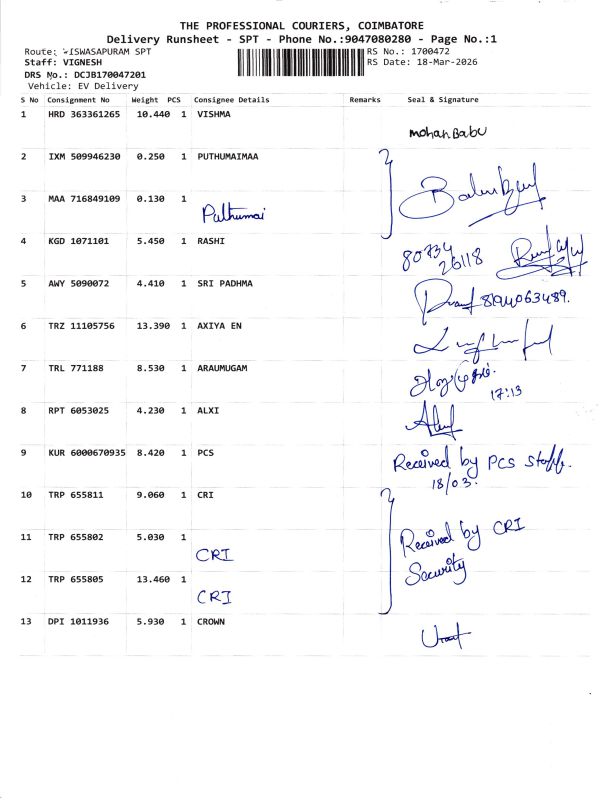 THE PROFESSIONAL COURIERS, COIMBATORE
Delivery Runsheet - SPT - Phone No.:9047080280 - Page No.:1
Route: VISWASAPURAM SPT
RS No.: 1700472
Staff: VIGNESH
RS Date: 18-Mar-2026
DRS No.: DCJB170047201
Vehicle: EV Delivery
S No Consignment No Weight PCS Consignee Details Remarks Seal & Signature
1 HRD 363361265 10.440 1 VISHMA
mohanBabu
2 IXM 509946230 0.250 1 PUTHUMAIMAA
3 MAA 716849109 0.130 1
Puthumai
4 KGD 1071101 5.450 1 RASHI
80734
26118
5 AWY 5090072 4.410 1 SRI PADHMA
6 TRZ 11105756 13.390 1 AXIYA EN
7 TRL 771188 8.530 1 ARAUMUGAM
17:13
8 RPT 6053025 4.230 1 ALXI
9 KUR 6000670935 8.420 1 PCS
Received by PCS staff.
18/03.
10 TRP 655811 9.060 1 CRI
11 TRP 655802 5.030 1
CRI
Received by CRI
Security
12 TRP 655805 13.460 1
CRI
13 DPI 1011936 5.930 1 CROWN